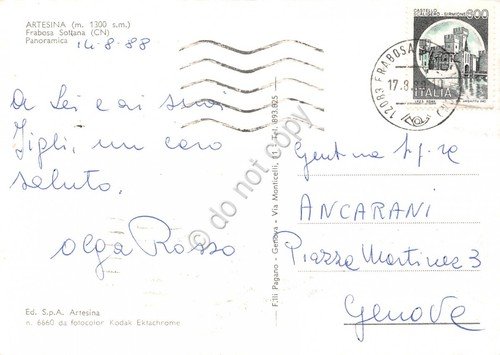 ARTESINA (m. 1300 s.m.)
Frabosa Sottana (CN)
Panoramica
14-8-88
A Lei e ai suoi
figli, un caro
saluto,
Olga Rosso
Ed. S.p.A. Artesina
n. 6660 da fotocolor Kodak Ektachrome
F.lli Pagano - Genova - Via Monticelli, 11
Tel. 893.825
© do not copy
CASTELLO
SCALIGERO - SIRMIONE
600
ITALIA
12083 FRABOSA
17.8.
Gent.ma
ANCARANI
Piazza Martinez 3
Genova